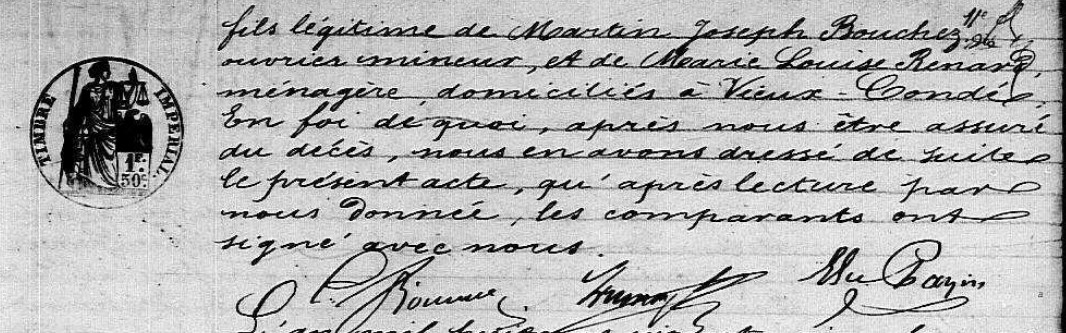 fils légitime de Martin Joseph Bouchez,
ouvrier mineur, et de Marie Louise Renard,
ménagère, domiciliés à Vieux-Condé,
En foi de quoi, après nous être assuré
du décès, nous en avons dressé de suite
le présent acte, qu'après lecture par
nous donnée, les comparants ont
signé avec nous.
TIMBRE IMPERIAL
1F.
50c.
L'an mil huit cent